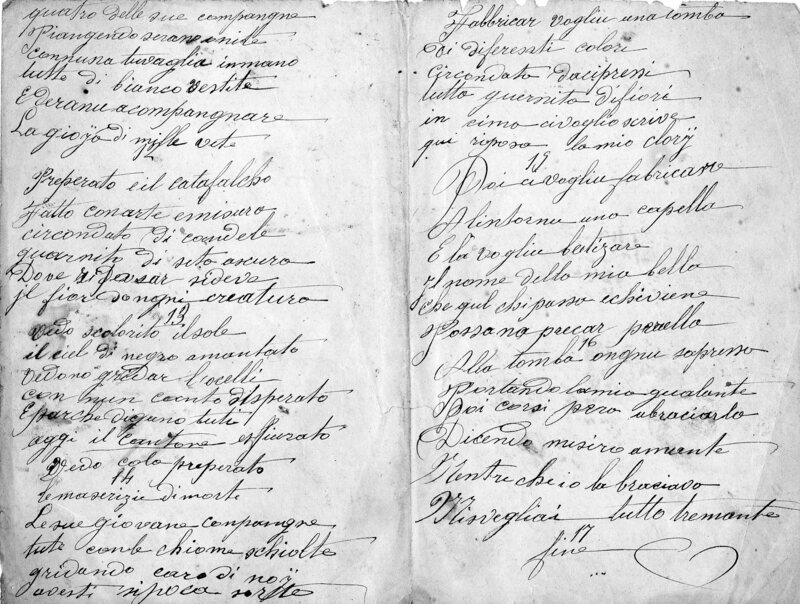 quatro delle sue compangne
Piangendo serano unite
connuna tuvaglia inmano
tutte di bianco vestite
E deranu acompangnare
La gioja di mille vite
Preperato eil catafalcho
Fatto conarte emisura
circondato di candele
guarnito di sito oscuro
Dove si deve
il fior dongni creatura
13
vedo scolorito il sole
il ciel di negro amantato
vedono gredar l'ocelli
con nun canto disperato
E parche digano tuti
oggi il cantone esfiurato
Vedo cola preperato
14
le maserizie di morte
Le sue giovane conpangne
tute conle chiome schiolte
gridando caro di noj
avesti si poca sorte
Fabbricar vogliu una tomba
Di diferenti colori
Circondata dacipressi
tutta guernita difiori
in cima civoglio scrive
qui riposa la mio clorj
15
Poi ci vogliu fabricare
Alintornu una capella
E la vogliu batizare
Il nome della mia bella
Che qul chi passa echiviene
Possano precar perella
Alla tomba ongnu sopresso
16
Portando la mia gualante
Poi corsi pera abraciarla
Dicendo misiro amante
Mentre che io la braciavo
Misvegliai tutto tremante
17
fine